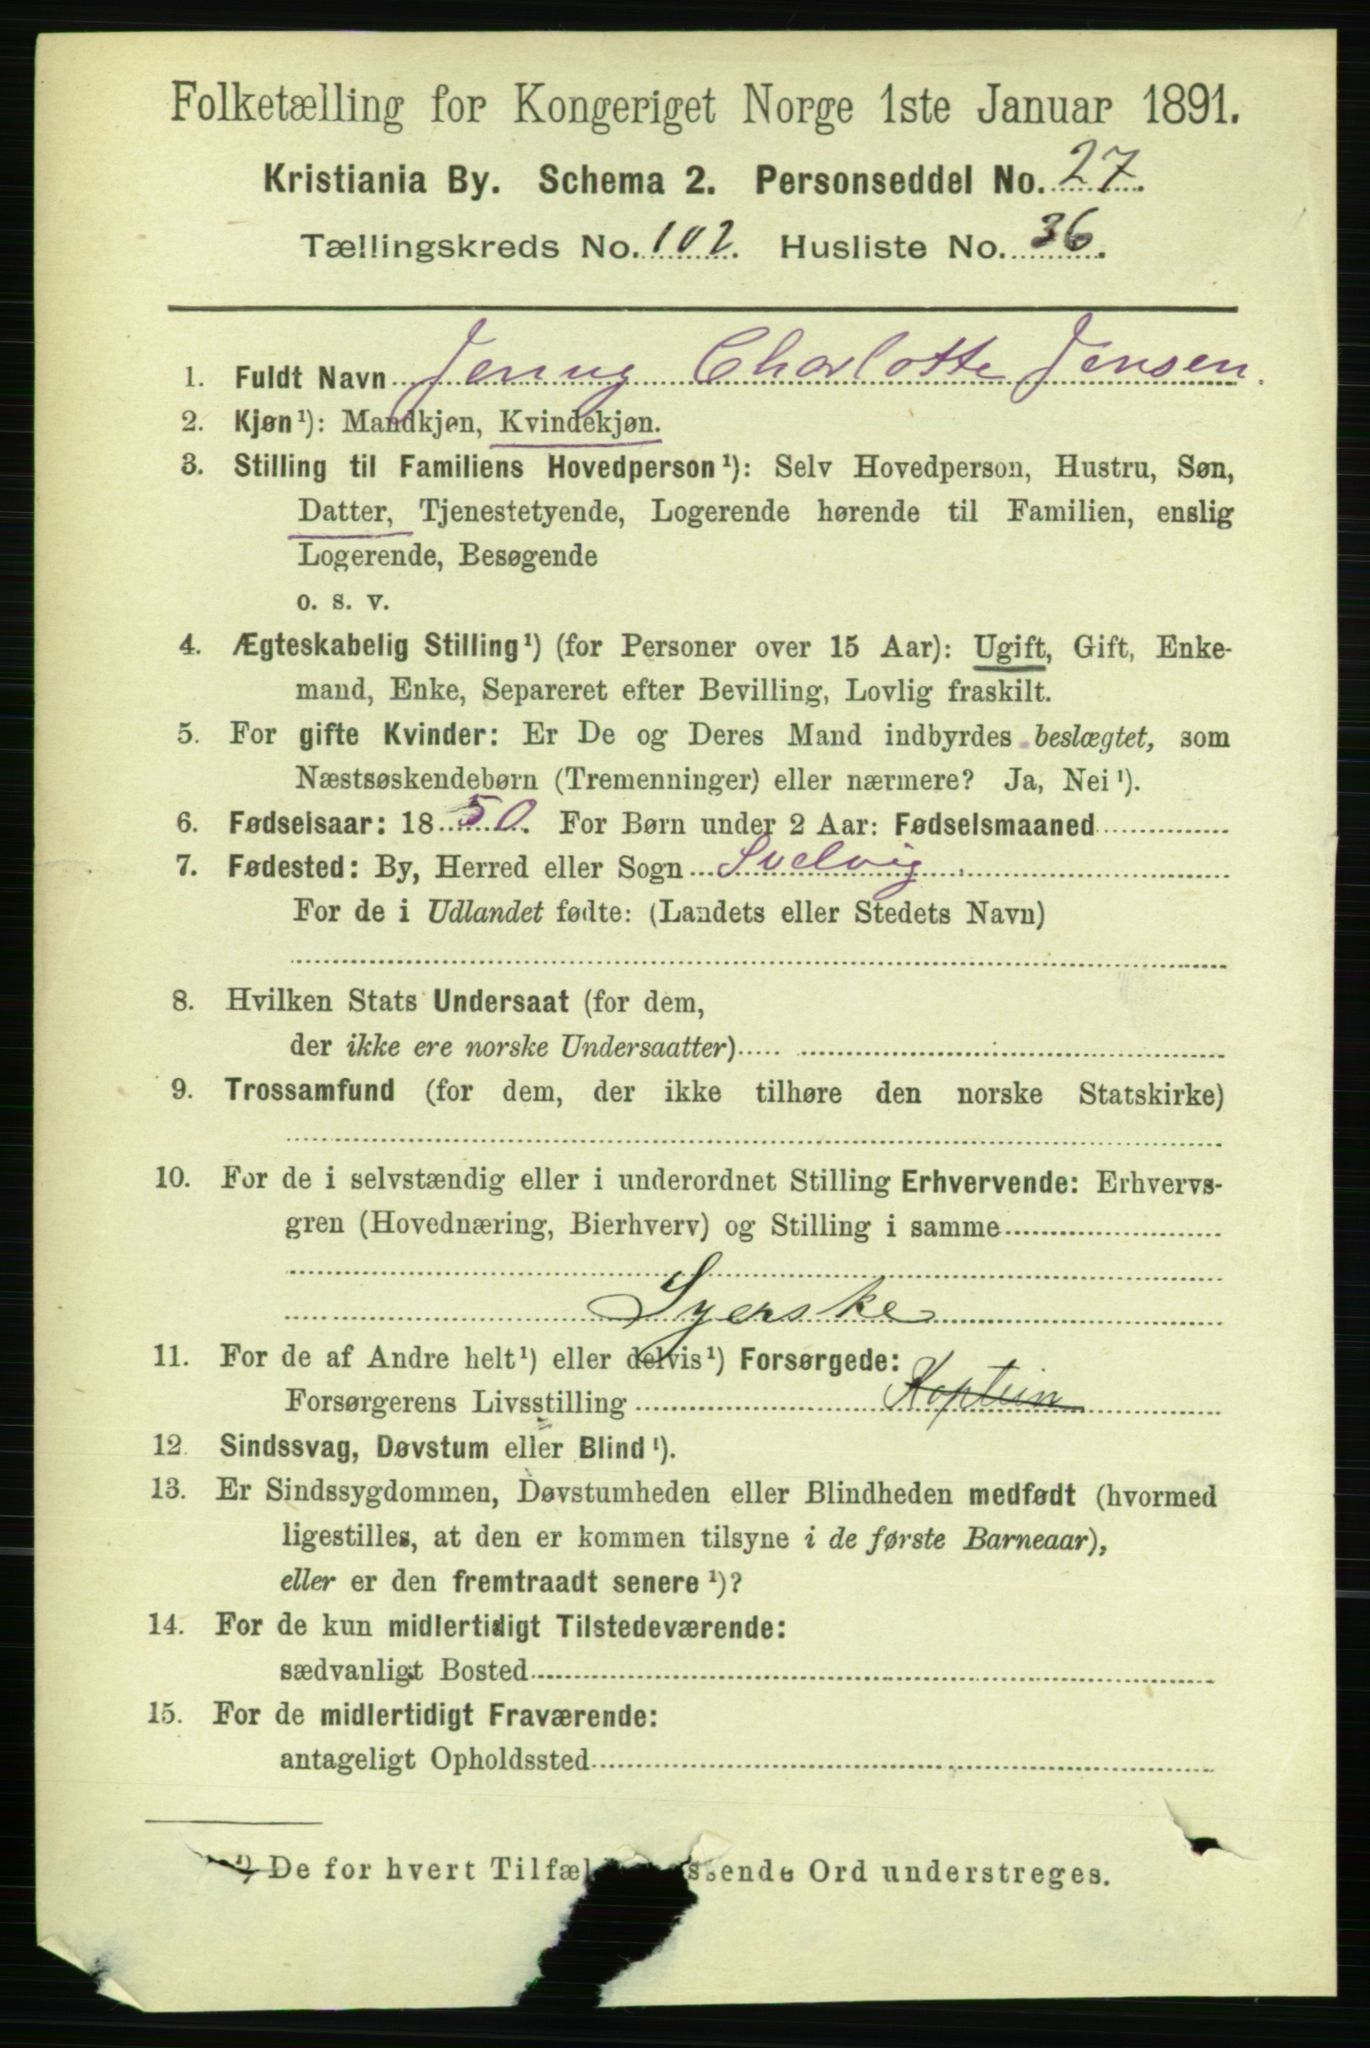 Folketælling for Kongeriget Norge 1ste Januar 1891.
Kristiania By. Schema 2. Personseddel No. 27.
Tællingskreds No. 102. Husliste No. 36.
1. Fuldt Navn Jenny Charlotte Jensen.
2. Kjøn¹): Mandkjøn, Kvindekjøn.
3. Stilling til Familiens Hovedperson¹): Selv Hovedperson, Hustru, Søn,
Datter, Tjenestetyende, Logerende hørende til Familien, enslig
Logerende, Besøgende
o. s. v.
4. Ægteskabelig Stilling¹) (for Personer over 15 Aar): Ugift, Gift, Enke-
mand, Enke, Separeret efter Bevilling, Lovlig fraskilt.
5. For gifte Kvinder: Er De og Deres Mand indbyrdes beslægtet, som
Næstsøskendebørn (Tremenninger) eller nærmere? Ja, Nei¹).
6. Fødselsaar: 1850. For Børn under 2 Aar: Fødselsmaaned
7. Fødested: By, Herred eller Sogn Svelvig.
For de i Udlandet fødte: (Landets eller Stedets Navn)
8. Hvilken Stats Undersaat (for dem,
der ikke ere norske Undersaatter)
9. Trossamfund (for dem, der ikke tilhøre den norske Statskirke)
10. For de i selvstændig eller i underordnet Stilling Erhvervende: Erhvervs-
gren (Hovednæring, Bierhverv) og Stilling i samme
Syerske
11. For de af Andre helt¹) eller delvis¹) Forsørgede:
Forsørgerens Livsstilling Koptein
12. Sindssvag, Døvstum eller Blind¹).
13. Er Sindssygdommen, Døvstumheden eller Blindheden medfødt (hvormed
ligestilles, at den er kommen tilsyne i de første Barneaar),
eller er den fremtraadt senere¹)?
14. For de kun midlertidigt Tilstedeværende:
sædvanligt Bosted
15. For de midlertidigt Fraværende:
antageligt Opholdssted
¹) De for hvert Tilfæl ssende Ord understreges.